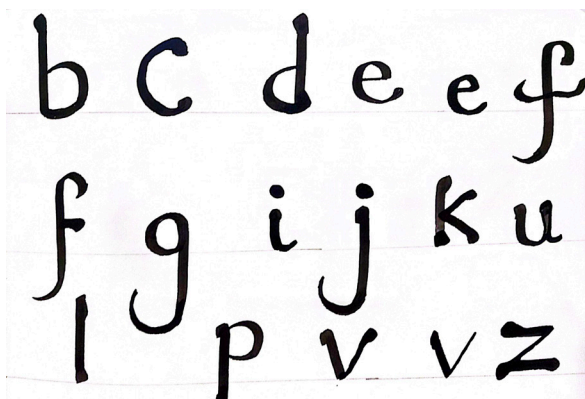 b c d e e f
f g i j k u
l p v v z